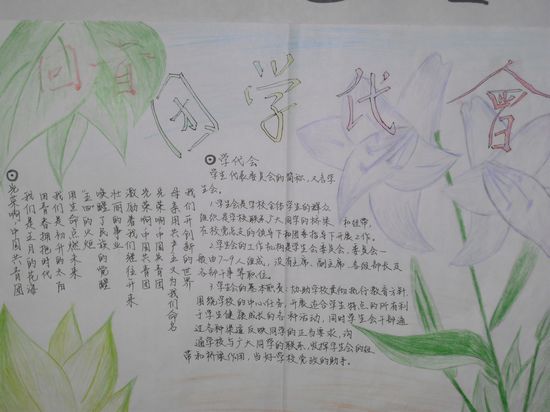 回首团学代会
光荣啊,中国共青团
我们是五月的花海
用青春拥抱时代
我们是初升的太阳
用生命点燃未来
五四的火炬
唤醒了民族的觉醒
壮丽的事业
激励着我们继往开来
光荣啊中国共青团
光荣啊中国共青团
母亲用共产主义为我们命名
我们开创新
学代会
学生代表委员会的简称,又名学
生会。
1.学生会是学校全体学生的群众
组织,是学校联系广大同学的桥梁和纽带,
在校党总支的领导下和团委指导下开展工作。
2.学生会的工作机构是学生会委员会,委员会一
般由7-9人组成,设有主席、副主席、各级部长及
各部干事等职位。
3.学生会的基本职责:协助学校贯彻执行教育方针,
围绕学校的中心任务,开展适合学生特点的所有利
于学生健康成长的各种活动,同时学生会干部通
过各种渠道反映同学的正当要求,沟
通学校与广大同学的联系,发挥学生会的纽
带和桥梁作用,当好学校党政的助手。